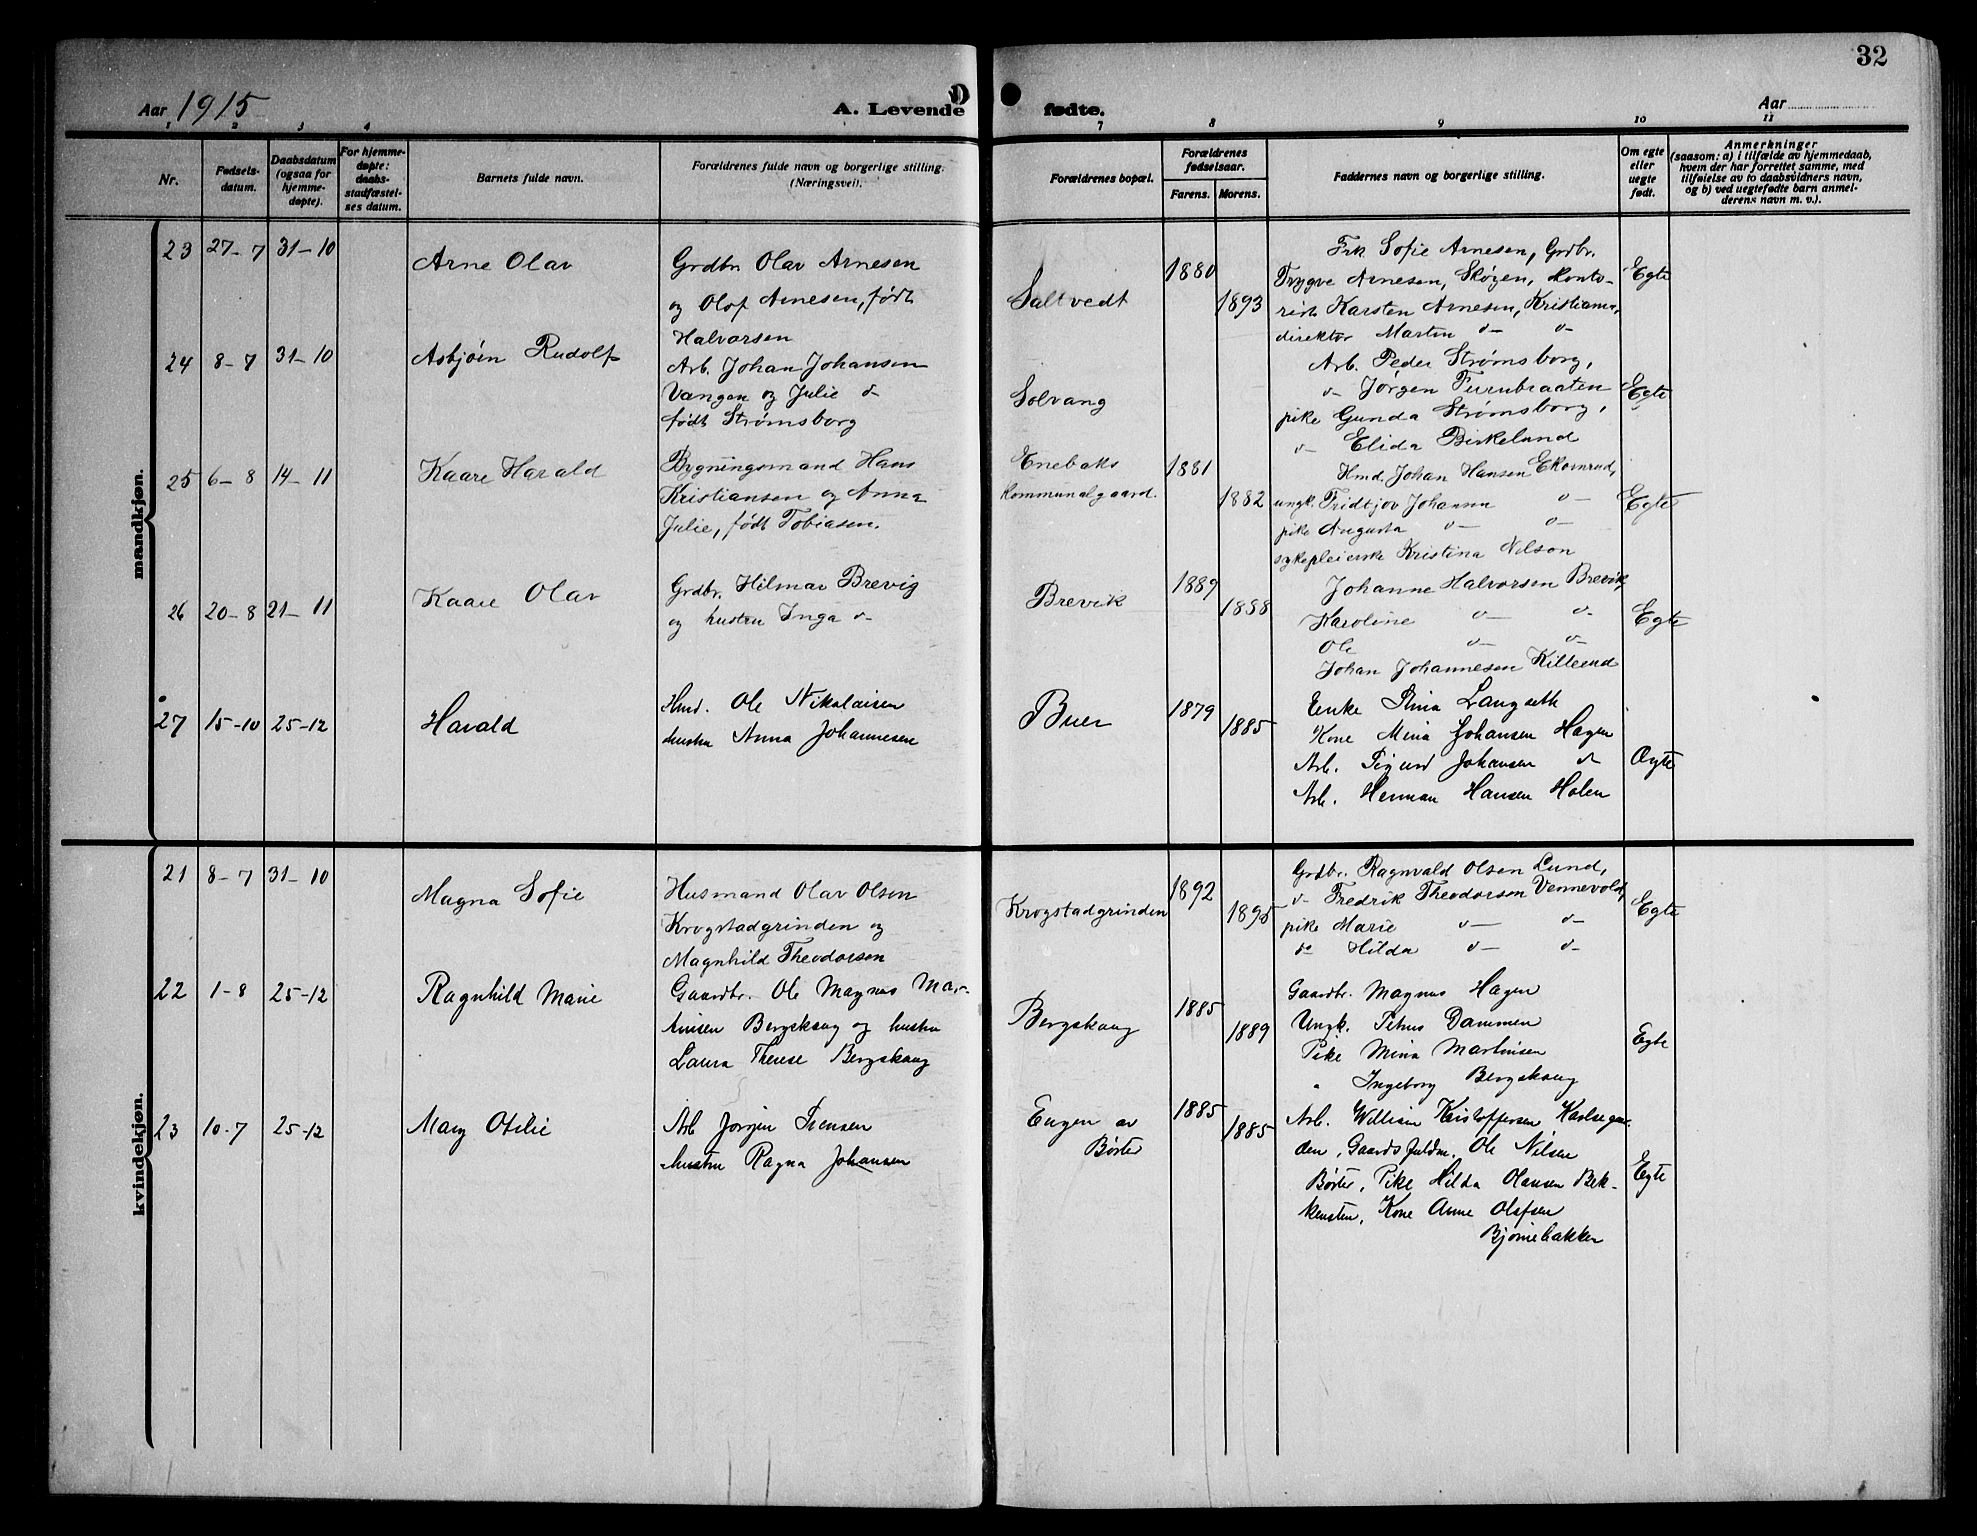 32
Aar 1915
A. Levende fødte.
Aar
1 2 3 4 7 8 9 10 11
Nr.
Fødsels-
datum.
Daabsdatum
(ogsaa for
hjemme-
døpte).
For hjemme-
døpte:
daabs-
stadfæstel-
ses datum.
Barnets fulde navn.
Forældrenes fulde navn og borgerlige stilling.
(Næringsvei).
Forældrenes bopæl.
Forældrenes
fødselsaar.
Farens. Morens.
Faddernes navn og borgerlige stilling.
Om egte
eller
uegte
født.
Anmerkninger
(saasom: a) i tilfælde av hjemmedaab,
hvem der har forrettet samme, med
tilføielse av to daabsvidners navn,
og b) ved uegtefødte barn anmel-
derens navn m. v.).
mandkjøn.
23 27-7 31-10
Arne Olav
Grdbr. Olav Arnesen
og Olof Arnesen, født
Halvorsen
Saltvedt
1880
1893
Frk Sofie Arnesen, Grdbr.
Trygve Arnesen, Skøyen, Konto-
rist Karsten Arnesen, Kristiania,
direktør Martin d- d-
Egte
24 8-7 31-10
Asbjøin Rudolf
Arb. Johan Johansen
Vangen og Julie d-
født Strømsborg
Solvang
Arb. Peder Strømsborg,
d- Jørgen Furubraaten
pike Gunda Strømsborg,
d- Elida Birkelund
Egte
25 6-8 14-11
Kaare Harald
Bygningsmand Hans
Kristiansen og Anna
Julie, født Tobiasen.
Enebaks
kommunalgaard.
1881
1882
Hmd. Johan Hansen Ekornrud,
ungk. Fridtjov Johanna d-
pike Augusta d- d-
sykepleierske Kristina Nilson
Egte
26 20-8 21-11
Kaare Olav
Grdbr. Hilmar Brevig
og hustru Inga d-
Brevik
1889
1888
Johanne Halvorsen Brevik,
Karoline d- d-
Ole d- d-
Johan Johannesen Killerud
Egte
27 15-10 25-12
Harald
Hmd. Ole Nikolaisen
hustru Anna Johannesen
Buer
1879
1885
Enke Stina Langseth
Kone Mina Johansen Hagen
Arb. Sigurd Johansen d-
Arb. Herman Hansen Holen
Ægte
kvindekjøn.
21 8-7 31-10
Magna Sofie
Husmand Olav Olsen
Krogstadgrinden og
Magnhild Theodorsen
Krogstadgrinden
1892
1895
Grdbr. Ragnvald Olsen Lund,
d- Fredrik Theodorson Vennevold,
pike Marie d- d-
do Hilda d- d-
Egte
22 1-8 25-12
Ragnhild Marie
Gaardbr. Ole Magnus Mar-
tinsen Bergskaug og hustru
Laura Therese Bergskaug
Bergskaug
1885
1889
Gaardbr. Magnus Hagen
Ungk. Petrus Dammen
Pike Mina Martinsen
" Ingeborg Bergskaug
Egte
23 10-7 25-12
Mary Otilie
Arb Jørgen Svensen
hustru Ragna Johansen
Engen av
Børter
1885
1885
Arb. William Kristoffersen Karlsgau-
den, Gaardsfuldm. Ole Nilsen
Børter, Pike Hilda Olausen Bek-
kensten, Kone Anne Olafsen
Bjørnebakken
Egte